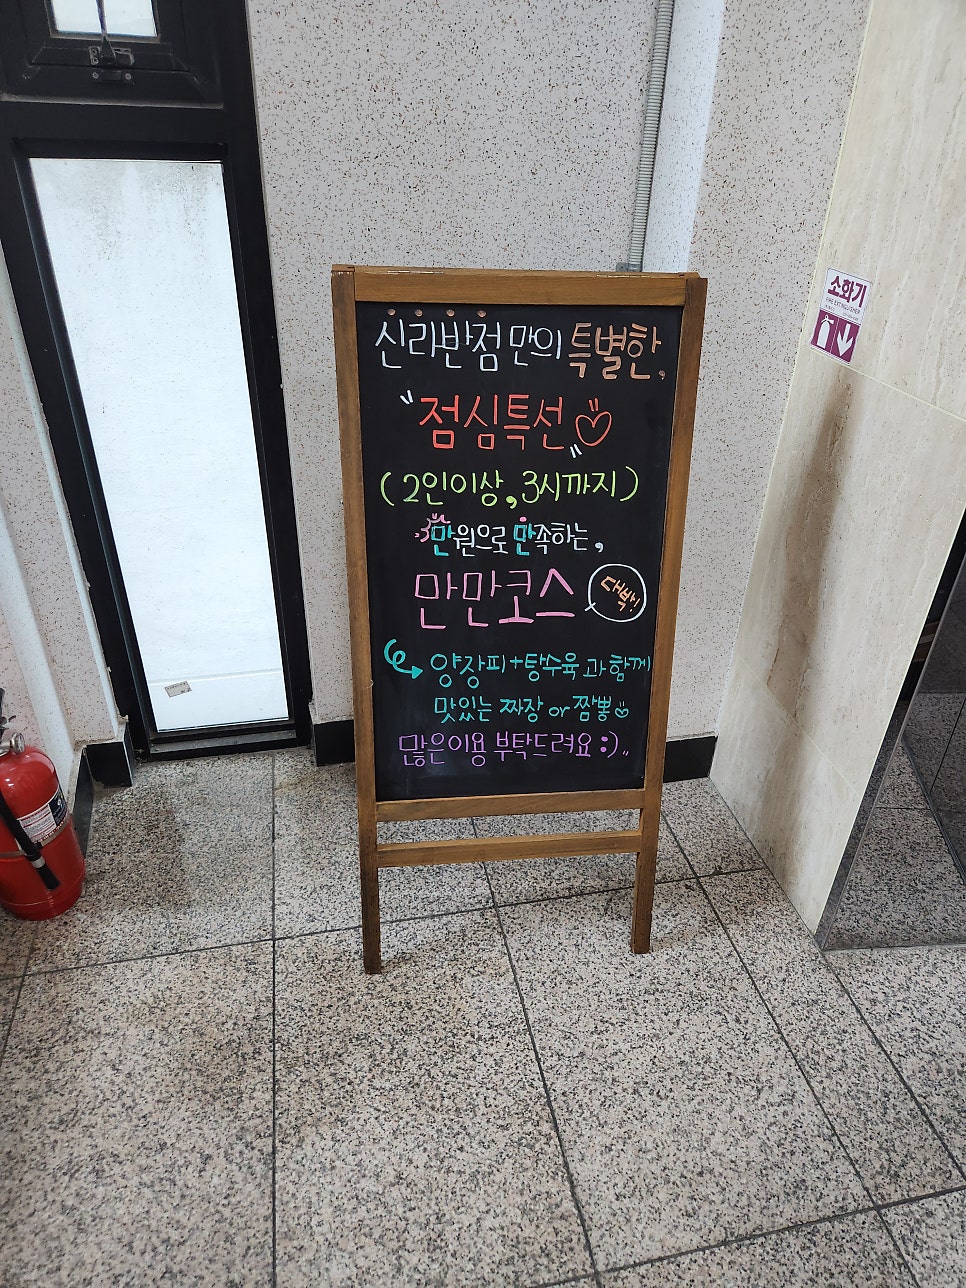 신라반점만의 특별한,
"점심특선"
(2인이상, 3시까지)
만원으로 만족하는,
만만코스
대박!
양장피+탕수육과 함께
맛있는 짜장 or 짬뽕
많은이용 부탁드려요 :)..
소화기
FIRE EXTINGUISHER